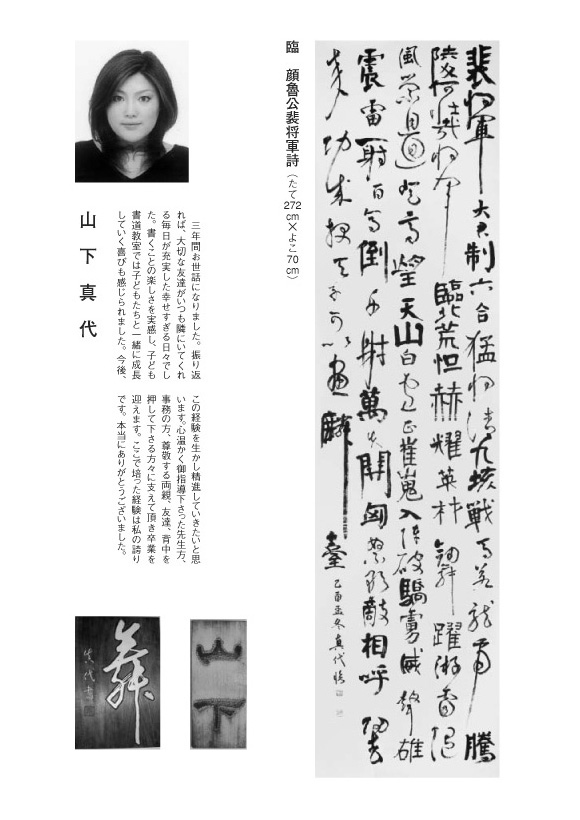 裴将軍 大君制六合猛将清九垓戦馬若龍虎騰
陵何壮哉将軍臨北荒恒赫耀英材劔舞躍游雷随
風縈且迴登高望天山白雲正崔嵬入陣破驕虜威聲雄
震雷一射百馬倒再射萬夫開匈奴不敢敵相呼歸去
来功成報天子可以畫麟臺 乙酉孟冬真代臨
臨 顔魯公裴将軍詩（たて272cm×よこ70cm）
三年間お世話になりました。振り返
れば、大切な友達がいつも隣にいてくれ
る毎日が充実した幸せすぎる日々でし
た。書くことの楽しさを実感し、子ども
書道教室では子どもたちと一緒に成長
していく喜びも感じられました。今後、
この経験を生かし精進していきたいと思
います。心温かく御指導下さった先生方、
事務の方、尊敬する両親、友達、背中を
押して下さる方々に支えて頂き卒業を
迎えます。ここで培った経験は私の誇り
です。本当にありがとうございました。
山下真代
山下
舞
真代書